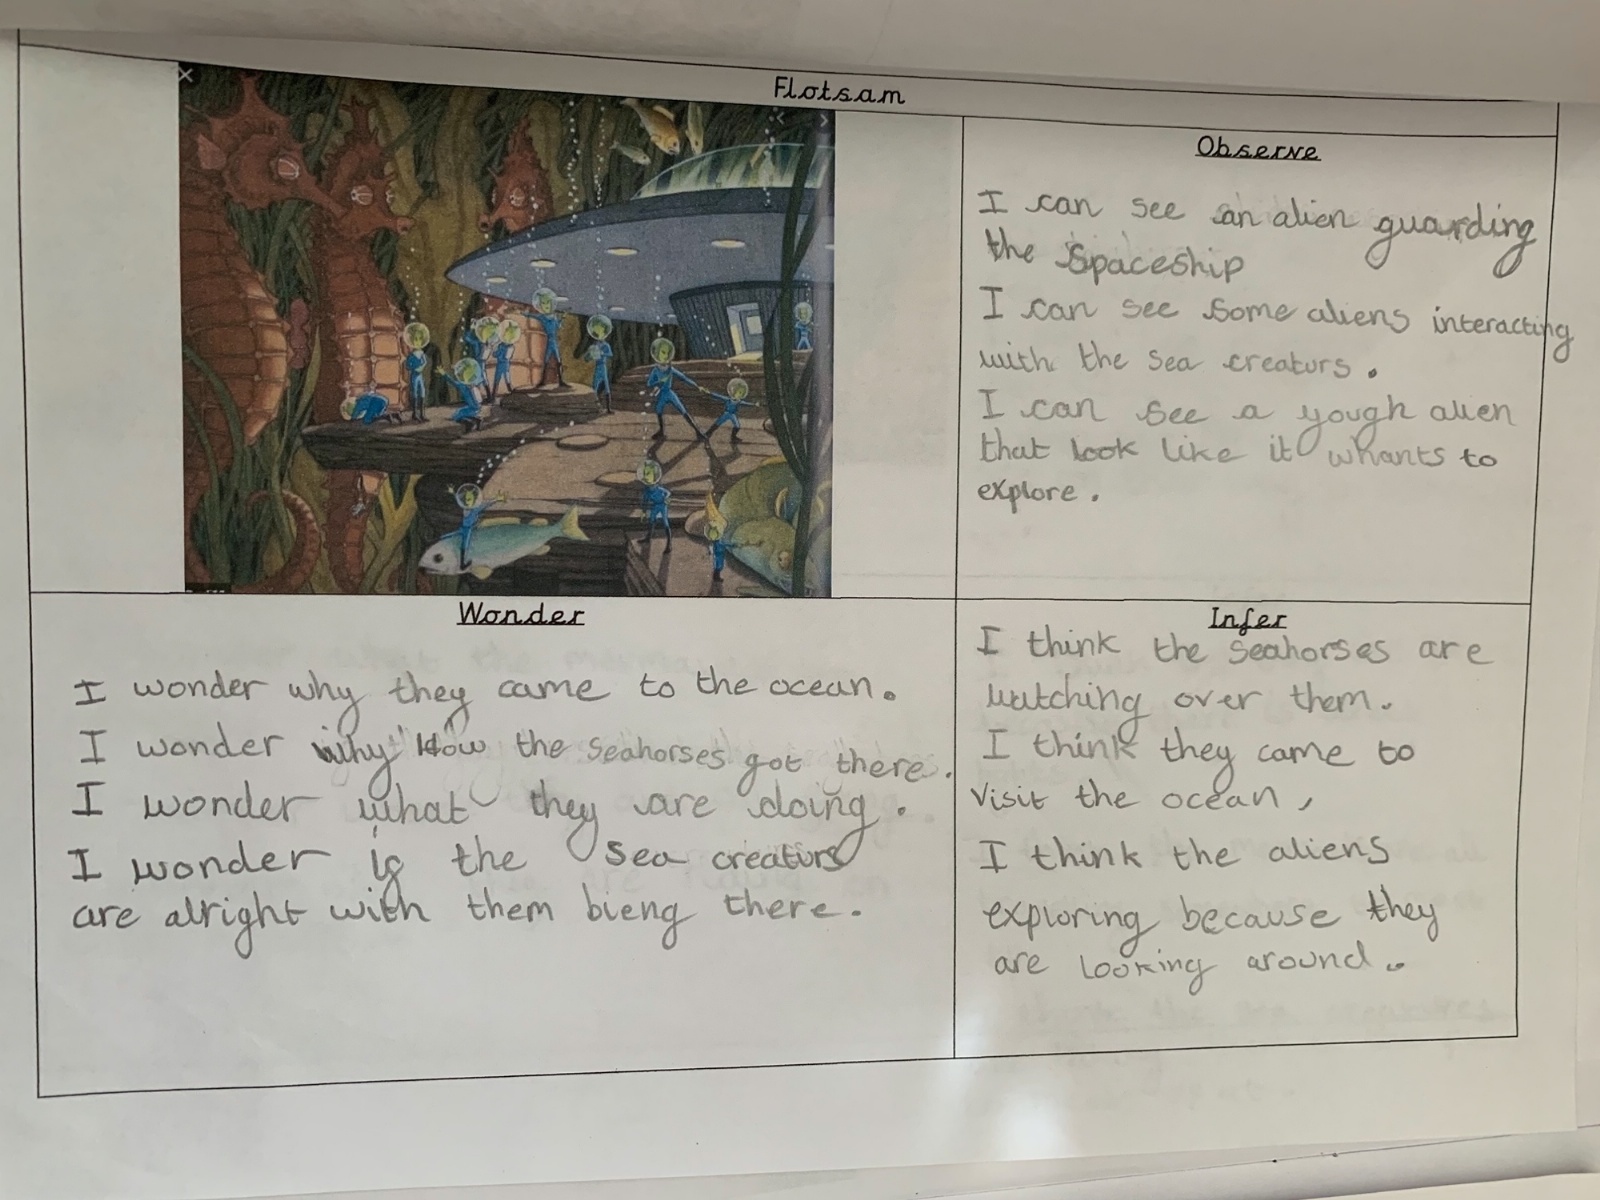 Flotsam
Observe
I can see an alien guarding
the spaceship
I can see some aliens interacting
with the sea creaturs.
I can see a yough alien
that look like it whants to
explore.
Wonder
I wonder why they came to the ocean.
I wonder why How the seahorses got there.
I wonder what they are doing.
I wonder is the sea creaturs
are alright with them bieng there.
Infer
I think the seahorses are
watching over them.
I think they came to
visit the ocean,
I think the aliens
exploring because they
are looking around.